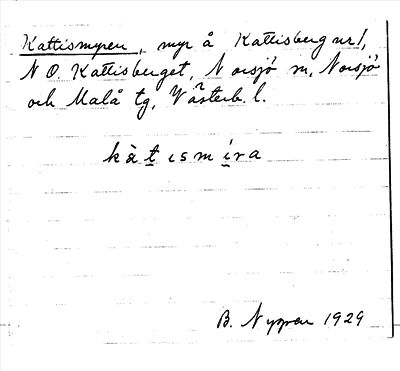 Kattismyren, myr å Kattisberg nr 1,
N O. Kattisberget, Norsjö sn, Norsjö
och Malå tg, Västerb. l.
kàt̲ısmı̲́ra
B. Nygren 1929